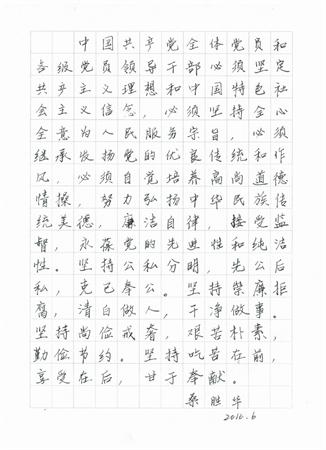 中国共产党全体党员和
各级党员领导干部必须坚定
共产主义理想和中国特色社
会主义信念，必须坚持全心
全意为人民服务宗旨，必须
继承发扬党的优良传统和作
风，必须自觉培养高尚道德
情操，努力弘扬中华民族传
统美德，廉洁自律，接受监
督，永葆党的先进性和纯洁
性。坚持公私分明，先公后
私，克己奉公。坚持崇廉拒
腐，清白做人，干净做事。
坚持尚俭戒奢，艰苦朴素，
勤俭节约。坚持吃苦在前，
享受在后，甘于奉献。
桑胜华
2016.6